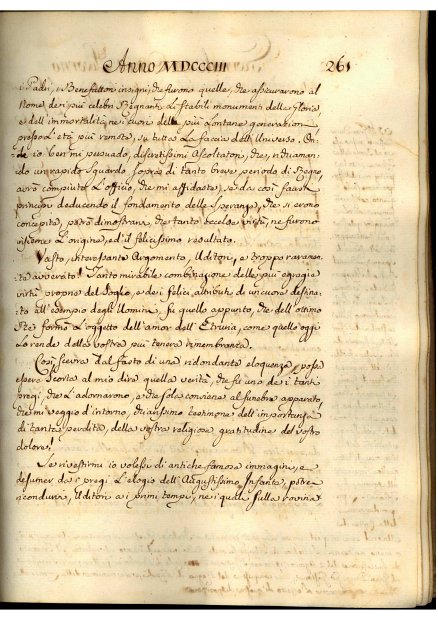 Anno MDCCCIII 261
Padri, e Benefattori insigni, che furono quelle, che assicurarono al
Nome dei più celebri Regnanti li stabili monumenti della Gloria
e dell'immortalità, nei cuori delle più lontane generazioni
presso l'età più remote, su tutta la faccia dell'Universo. On-
de io ben mi persuado, discretissimi Ascoltatori, che, richiaman-
do un rapido sguardo sopra di tanto breve periodo di Regno,
avrò compiuto l'officio, che mi affidaste, se da così fausti
principj deducendo il fondamento delle speranze, che si erano
concepite, potrò dimostrarvi, che tante eccelse virtù, ne furono
insieme l'origine, ed il felicissimo resultato.
Vasto, interessante Argomento, Uditori, e troppo
avverato! Tanto mirabile combinazione delle più egregie
virtù proprie del Soglio, e dei felici attributi di un cuore destina-
to all'esempio degli Uomini, fu quello appunto, che dell'ottimo
Rè formò l'oggetto dell'amor dell'Etruria, come quello oggi
lo rende della vostra più tenera rimembranza.
Così scevra dal fasto di una ridondante eloquenza, possa
essere scorta al mio dire quella verità, che fu uno dei tanti
pregi, che l'adornarono, e che sola conviene al funebre apparato,
che mi veggo d'intorno, chiarissimo testimone dell'importanza
di tanta perdita, della vostra religiosa gratitudine, del vostro
dolore!
Se rivestirmi io volessi di antiche famose immagini, e
desumer da' pregi l'elogio dell'Augustissimo Infante, potrei
ricondurvi, Uditori, ai primi tempi, nei quali sulla rovina